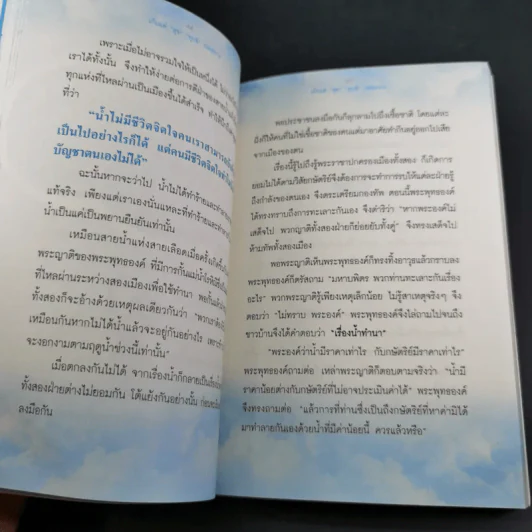 เพราะเมื่อไม่อาจรวมใจให้เป็นหนึ่งได้
เราได้ทั้งนั้น จึงทำให้ง่ายต่อการตีฝ่าของ
ทุกแห่งที่ไหลผ่านเป็นเมืองขึ้นได้สำเร็จ
ที่ว่า
"น้ำไม่มีชีวิตจิตใจคนเราสามารถ
เป็นไปอย่างไรก็ได้ แต่คนมีชีวิตจิตใจ
บัญชาตนเองไม่ได้"
ฉะนั้นหากจะว่าไป น้ำไม่ได้ทำร้าย
แท้จริง เพียงแต่เราเองนั่นแหละที่ทำร้าย
น้ำเป็นแค่เป็นพยานยืนยันเท่านั้น
เหมือนสายน้ำแห่งสายเลือดเมื่อครั้ง
พระญาติของพระพุทธองค์ ที่มีการกั้นแม่น้ำ
ที่ไหลผ่านระหว่างสองเมืองเพื่อใช้ทำนา
ทั้งสองก็จะอ้างด้วยเหตุผลเดียวกันว่า
เหมือนกันหากไม่ได้น้ำแล้วจะอยู่กันอย่างไร
จะงอกงามตามฤดูน้ำช่วงนี้เท่านั้น"
เมื่อตกลงกันไม่ได้ จากเรื่องน้ำก็กลาย
ทั้งสองฝ่ายต่างไม่ยอมกัน โต้แย้งกันอย่างนั้น
ลงมือกัน
พอประชาชนลงมือกันก็ลุกลามไปถึงเชื้อชาติ โดยแต่ละ
ฝั่งก็ใช้คนที่ไม่ใช่เชื้อชาติของตนแต่มาอาศัยทำกินอยู่ออกไปเสีย
จากเมืองของตน
เรื่องนี้รู้ไปถึงรู้พระราชาปกครองเมืองทั้งสอง ก็เกิดการ
ยอมไม่ได้ตามวิสัยกษัตริย์จึงต้องการจะทำการรบให้แต่ละฝ่ายรู้
ถึงกำลังของตนเอง จึงตระเตรียมกองทัพ ตอนนี้พระพุทธองค์
ได้ทรงทราบถึงการทะเลาะกันเอง จึงดำริว่า "หากพระองค์ไม่
เสด็จไป พวกญาติทั้งสองฝ่ายก็ย่อยยับทั้งคู่" จึงทรงเสด็จไป
ห้ามทัพทั้งสองเมือง
พอพระญาติเห็นพระพุทธองค์ก็ทรงทิ้งอาวุธแล้วกราบลง
พระพุทธองค์ก็ตรัสถาม "มหาบพิตร พวกท่านทะเลาะกันเรื่อง
อะไร" พวกพระญาติรู้เพียงเหตุเล็กน้อย ไม่รู้สาเหตุจริงๆ จึง
ตอบว่า "ไม่ทราบ พระองค์" พระพุทธองค์จึงไล่ถามไปจนถึง
ชาวบ้านจึงได้คำตอบว่า "เรื่องน้ำทำนา"
"พระองค์ว่าน้ำมีราคาเท่าไร กับกษัตริย์มีราคาเท่าไร"
พระพุทธองค์ถามต่อ เหล่าพระญาติก็ตอบตามจริงว่า "น้ำมี
ราคาน้อยต่างกับกษัตริย์ที่ไม่อาจประเมินค่าได้" พระพุทธองค์
จึงทรงถามต่อ "แล้วการที่ท่านซึ่งเป็นถึงกษัตริย์ที่หาค่ามิได้
มาทำลายกันเองด้วยน้ำที่มีค่าน้อยนี้ ควรแล้วหรือ"